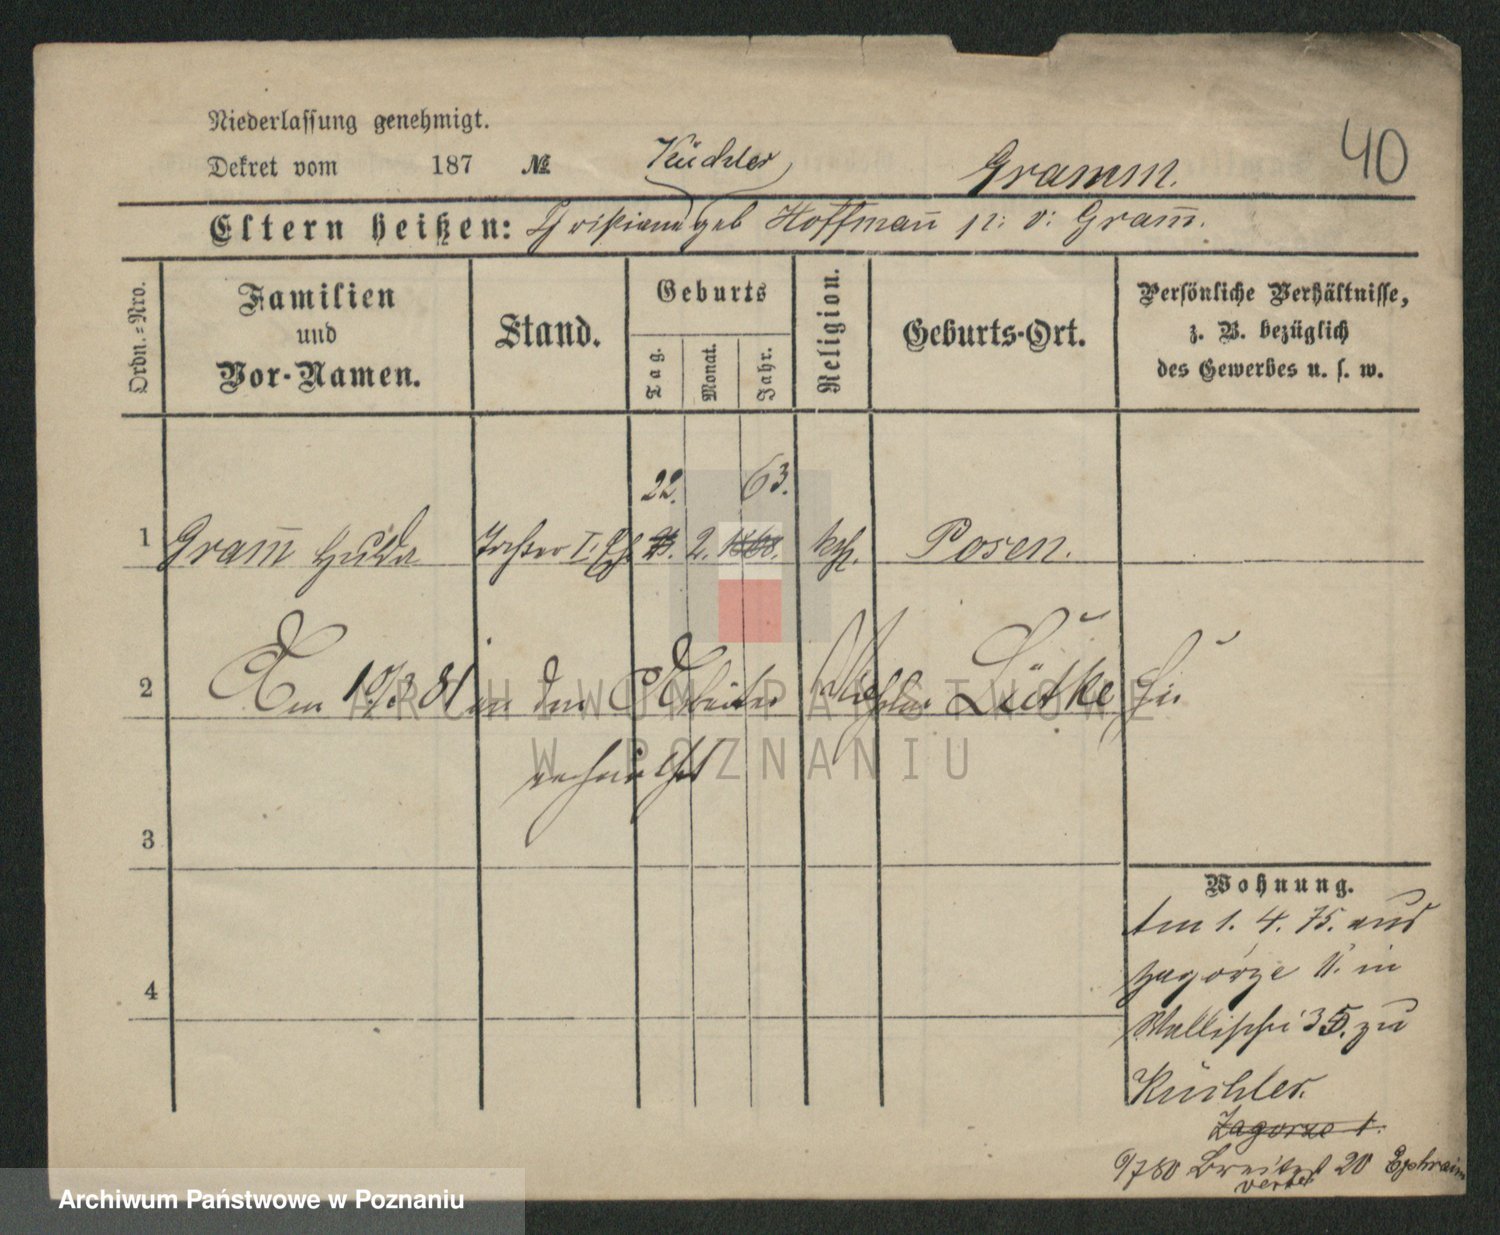 Niederlassung genehmigt.
Dekret vom 187 № Küchler Gramm. 40
Eltern heißen: Christiane geb Hoffmañ p: v: Gram̄.
Ordn.=Nro.
Familien
und
Vor-Namen.
Stand.
Geburts
Tag.
Monat.
Jahr.
Religion.
Geburts-Ort.
Persönliche Verhältnisse,
z. B. bezüglich
des Gewerbes u. s. w.
22. 63.
1 Gram̄ Hulda Tochter I. Eh. 2. 1868. kath. Posen.
2 Am 10/3 81 an den Arbeiter Lüdke
verheirathet
3
4
Wohnung.
Am 1. 4. 75. aus
Zagorze 11. in
Wallischei 35. zu
Küchler.
Zagorze 1.
9/7 80 Breitest 20 Ephraim
verter
ARCHIWUM PAŃSTWOWE
W POZNANIU
Archiwum Państwowe w Poznaniu